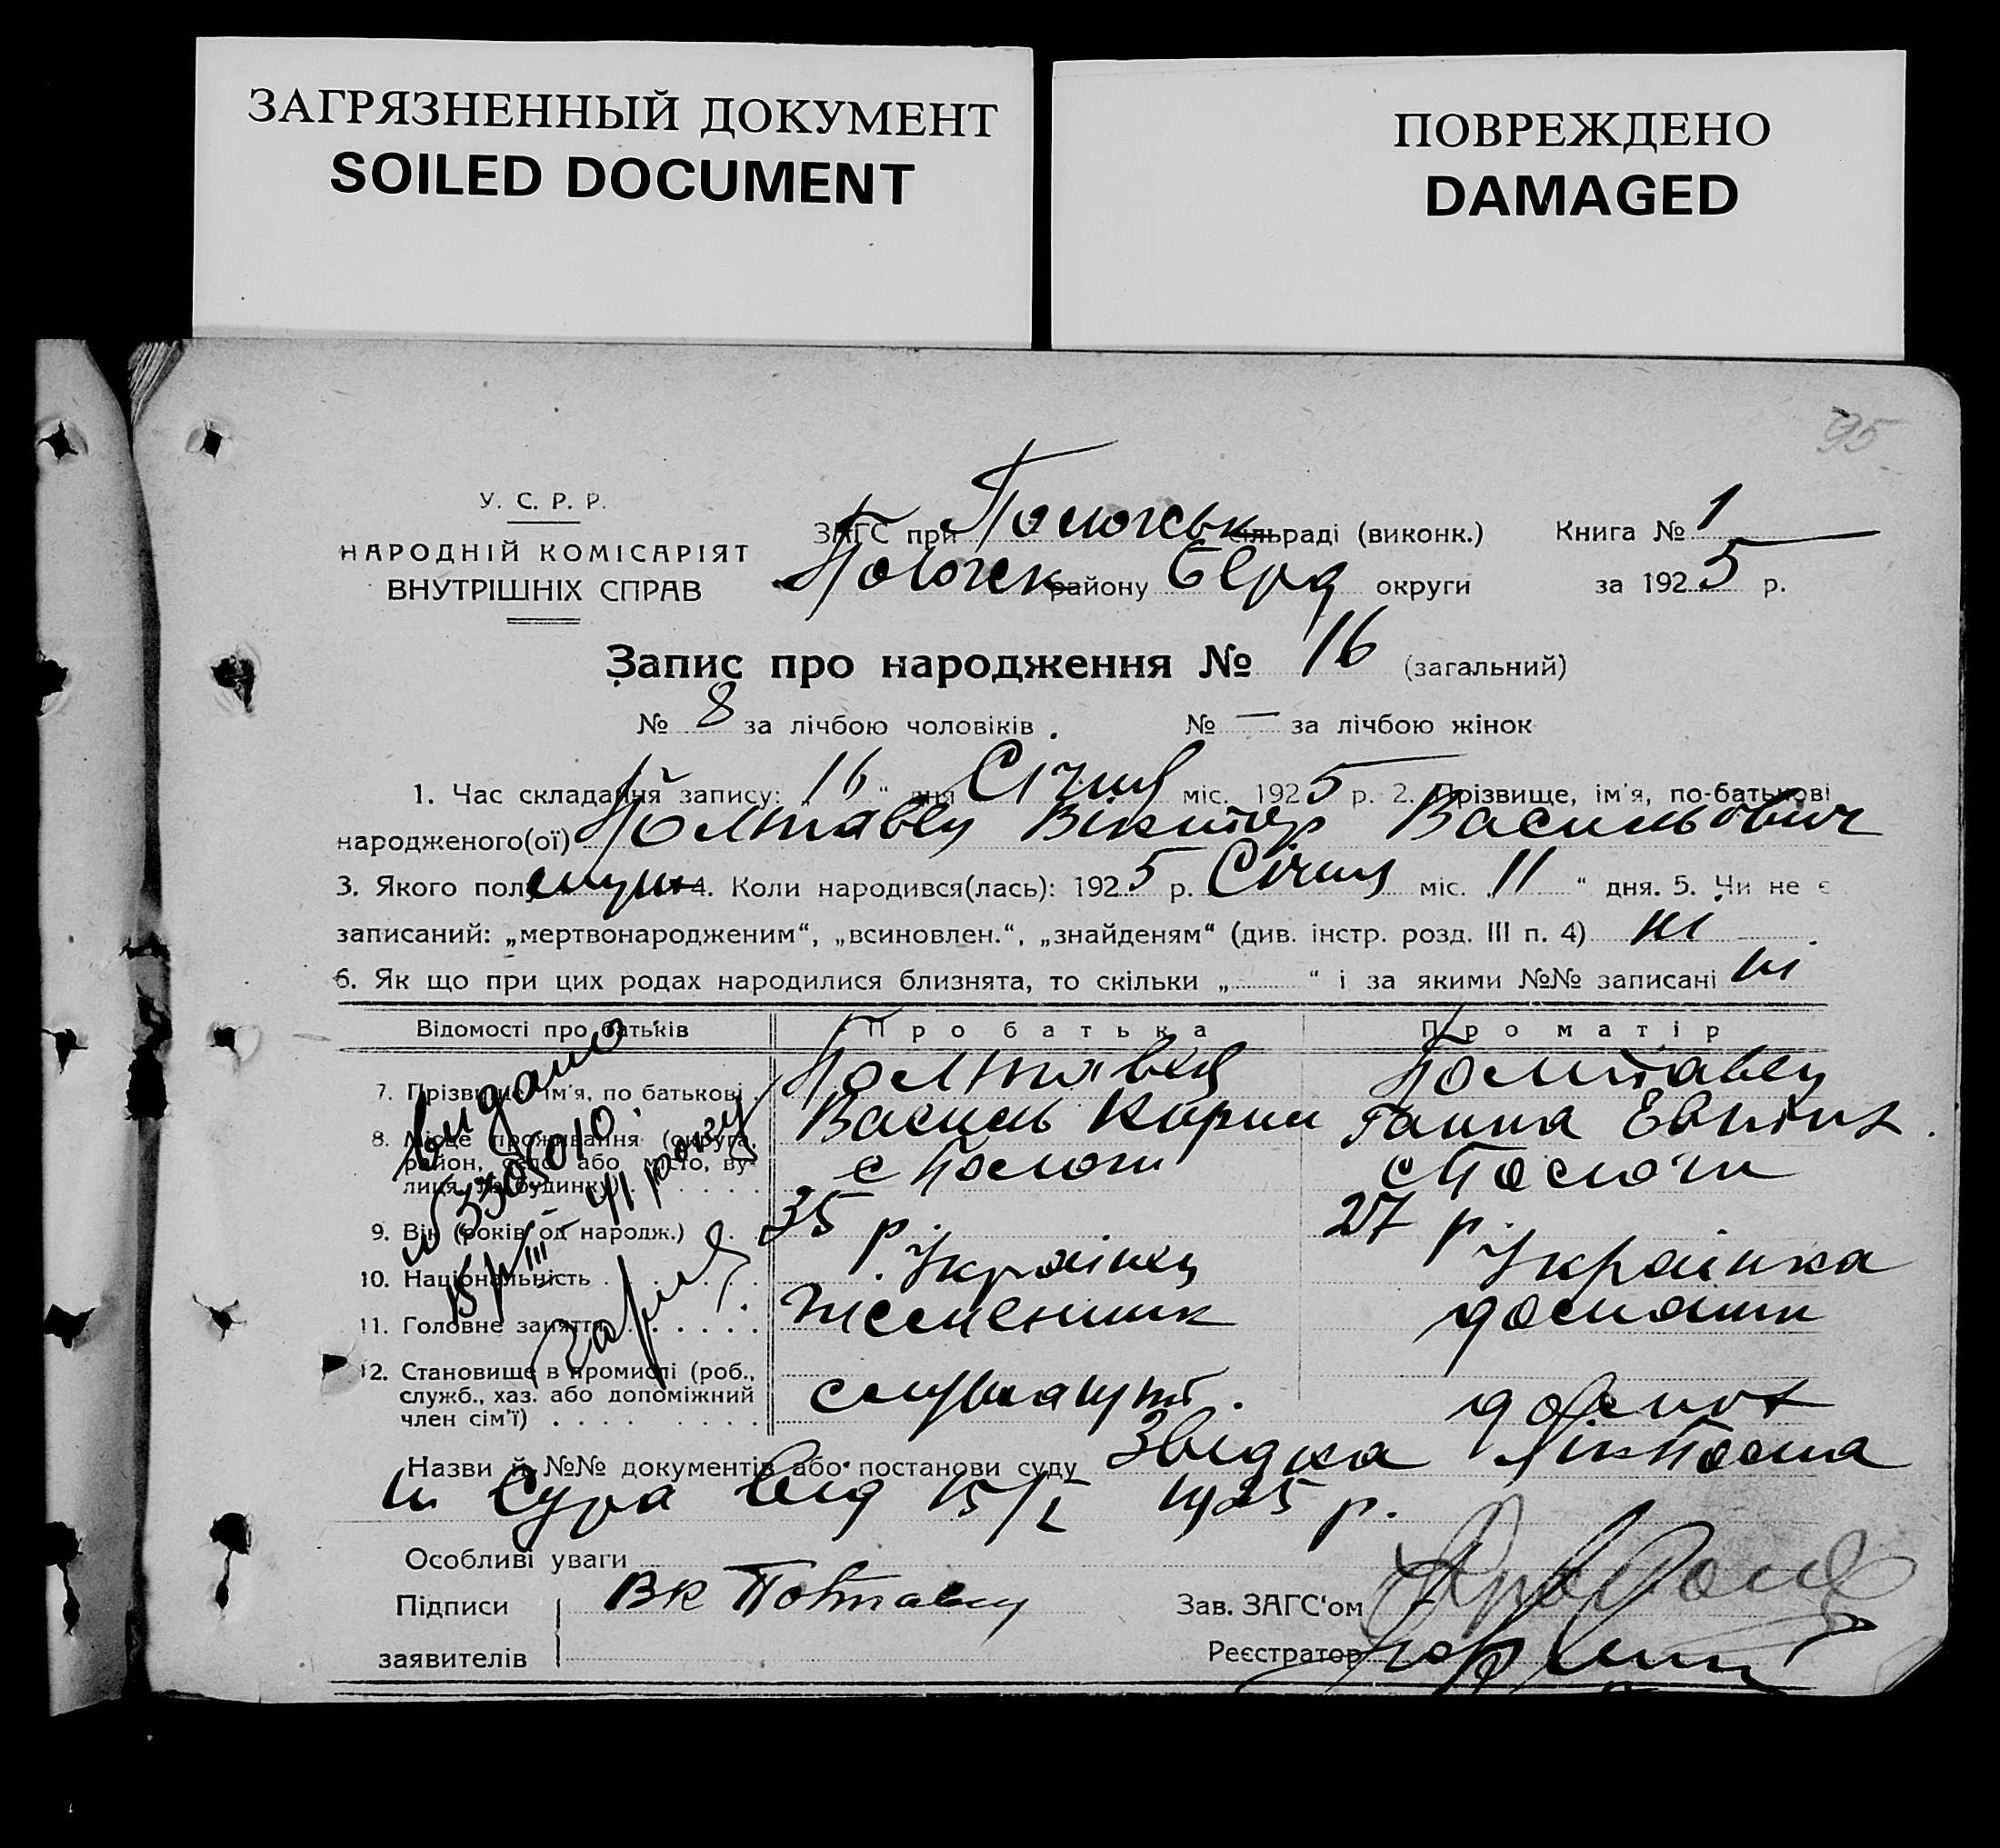 ЗАГРЯЗНЕННЫЙ ДОКУМЕНТ
SOILED DOCUMENT
ПОВРЕЖДЕНО
DAMAGED
95
У. С. Р. Р.
НАРОДНІЙ КОМІСАРІЯТ
ВНУТРІШНІХ СПРАВ
ЗАГС при Пологськ сільраді (виконк.)
Пологск району Берд округи
Книга № 1
за 1925 р.
Запис про народження № 16 (загальний)
№ 8 за лічбою чоловіків. № — за лічбою жінок
1. Час складання запису: „16“ дня Січня міс. 1925 р. 2. Прізвище, ім'я, по-батькові
народженого(ої) Полтавец Віктор Васильович
3. Якого полу муж 4. Коли народився(лась): 1925 р. Січня міс. „11“ дня. 5. Чи не є
записаний: „мертвонародженим“, „всиновлен.“, „знайденям“ (див. інстр. розд. III п. 4) ні
6. Як що при цих родах народилися близнята, то скільки „ “ і за якими №№ записані ні
Відомості про батьків Про батька Про матір
7. Прізвище, ім'я, по батькові Полтавец Василь Кирил Полтавец Ганна
8. Місце проживання (округа, район, село або місто, вулиця, № будинку) с Пологи с Пологи
9. Вік (років од народж.) 35 р. 27 р.
10. Національність Українец Українка
11. Головне заняття домашн
12. Становище в промислі (роб., служб., хаз. або допоміжний член сім'ї)
Видано
№ 330010
15/III 41 року
Назви й №№ документів або постанови суду Звідка
від 15/I 1925 р.
Особливі уваги
Підписи заявителів ВК Полтавец
Зав. ЗАГС'ом
Реєстратор